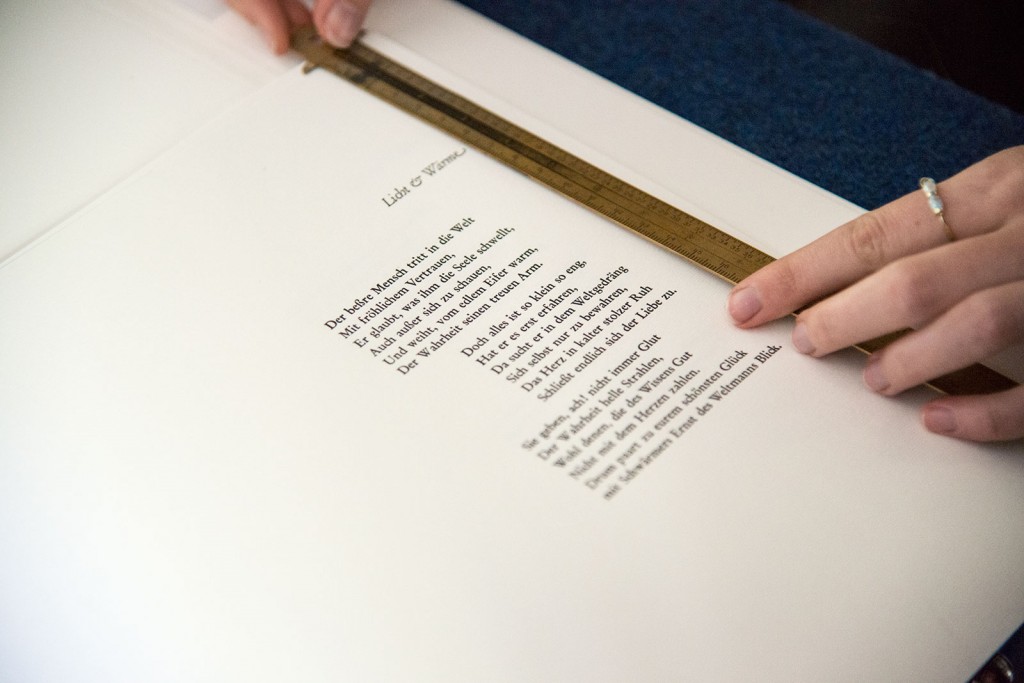 Licht & Wärme
Der beßre Mensch tritt in die Welt
Mit fröhlichem Vertrauen,
Er glaubt, was ihm die Seele schwellt,
Auch außer sich zu schauen,
Und weiht, vom edlem Eifer warm,
Der Wahrheit seinen treuen Arm.
Doch alles ist so klein so eng,
Hat er es erst erfahren,
Da sucht er in dem Weltgedräng
Sich selbst nur zu bewahren,
Das Herz in kalter stolzer Ruh
Schließt endlich sich der Liebe zu.
Sie geben, ach! nicht immer Glut
Der Wahrheit helle Strahlen,
Wohl denen, die des Wissens Gut
Nicht mit dem Herzen zahlen.
Drum paart zu eurem schönsten Glück
mit Schwärmers Ernst des Weltmanns Blick.